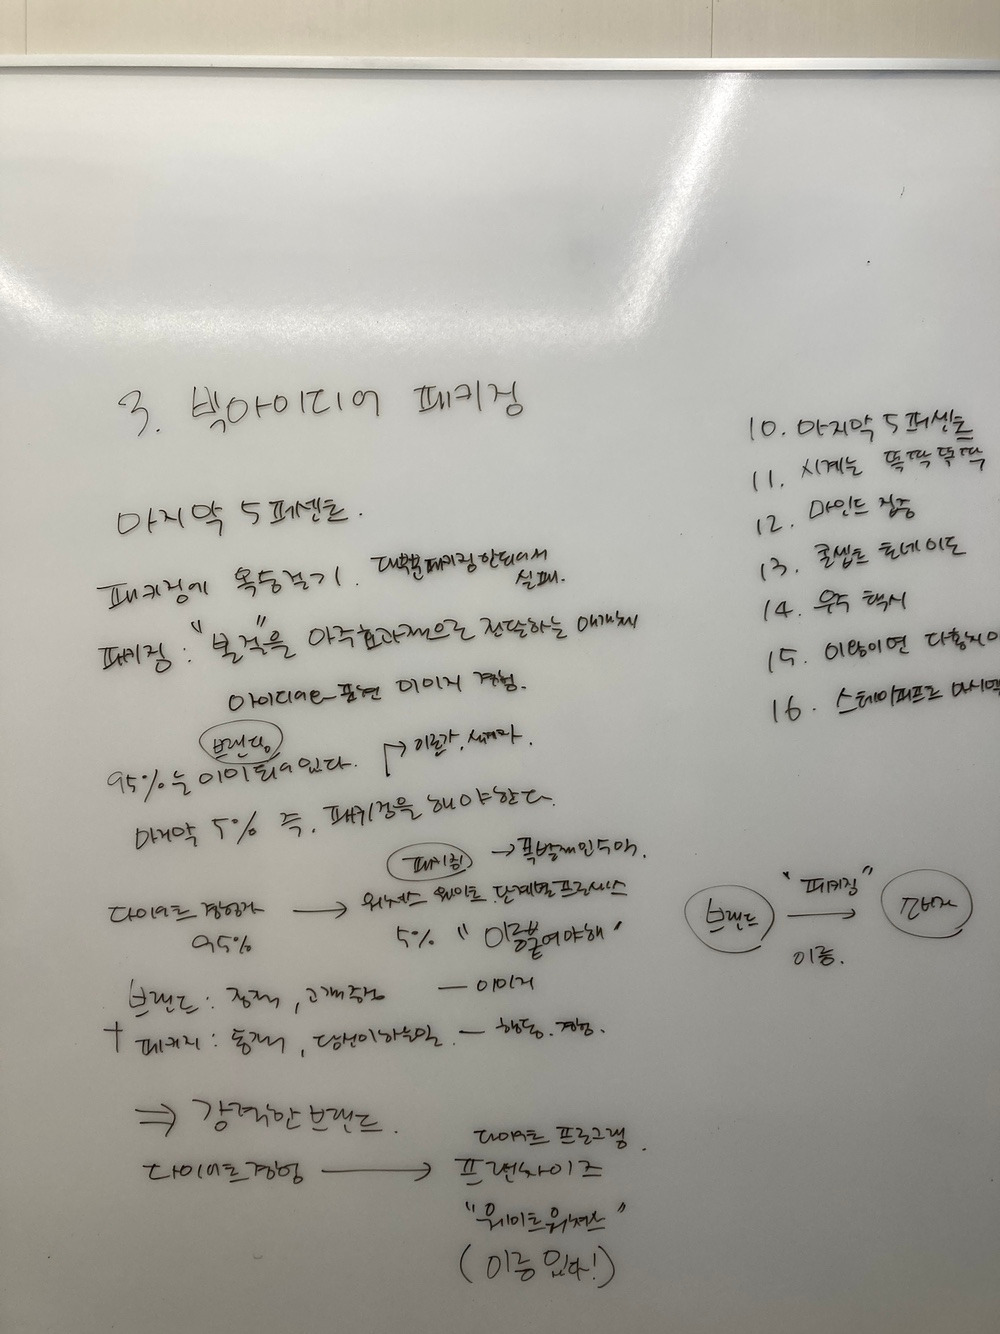 3. 빅아이디어 패키징
마지막 5퍼센트.
패키징에 목숨걸기. 대부분패키징안되어서
실패.
패키징 : "본질"을 아주효과적으로 전달하는 매개체
아이디어와 표현 이미지 경험.
브랜딩
95%는 이미 되어있다. → 이론가,
마지막 5% 즉, 패키징을 해야한다.
패키징 → 폭발적인 도약.
다이어트 경험자 → 단계별프로세스
95%
5% "이름붙여야해"
브랜드 : 정적, 고객중심 — 이미지
+ 패키지 : 동적, 당신이하는일. — 행동. 경험.
⇒ 강력한 브랜드.
다이어트 프로그램.
다이어트경험 → 프랜차이즈
"웨이트워처스"
(이름있다!)
10. 마지막 5퍼센트
11. 시계는 똑딱똑딱
12. 마인드 집중
13. 콘셉트 토네이도
14. 우주 택시
15. 이왕이면 다홍치마
16.
브랜드 "패키징" → 소비자
이름.